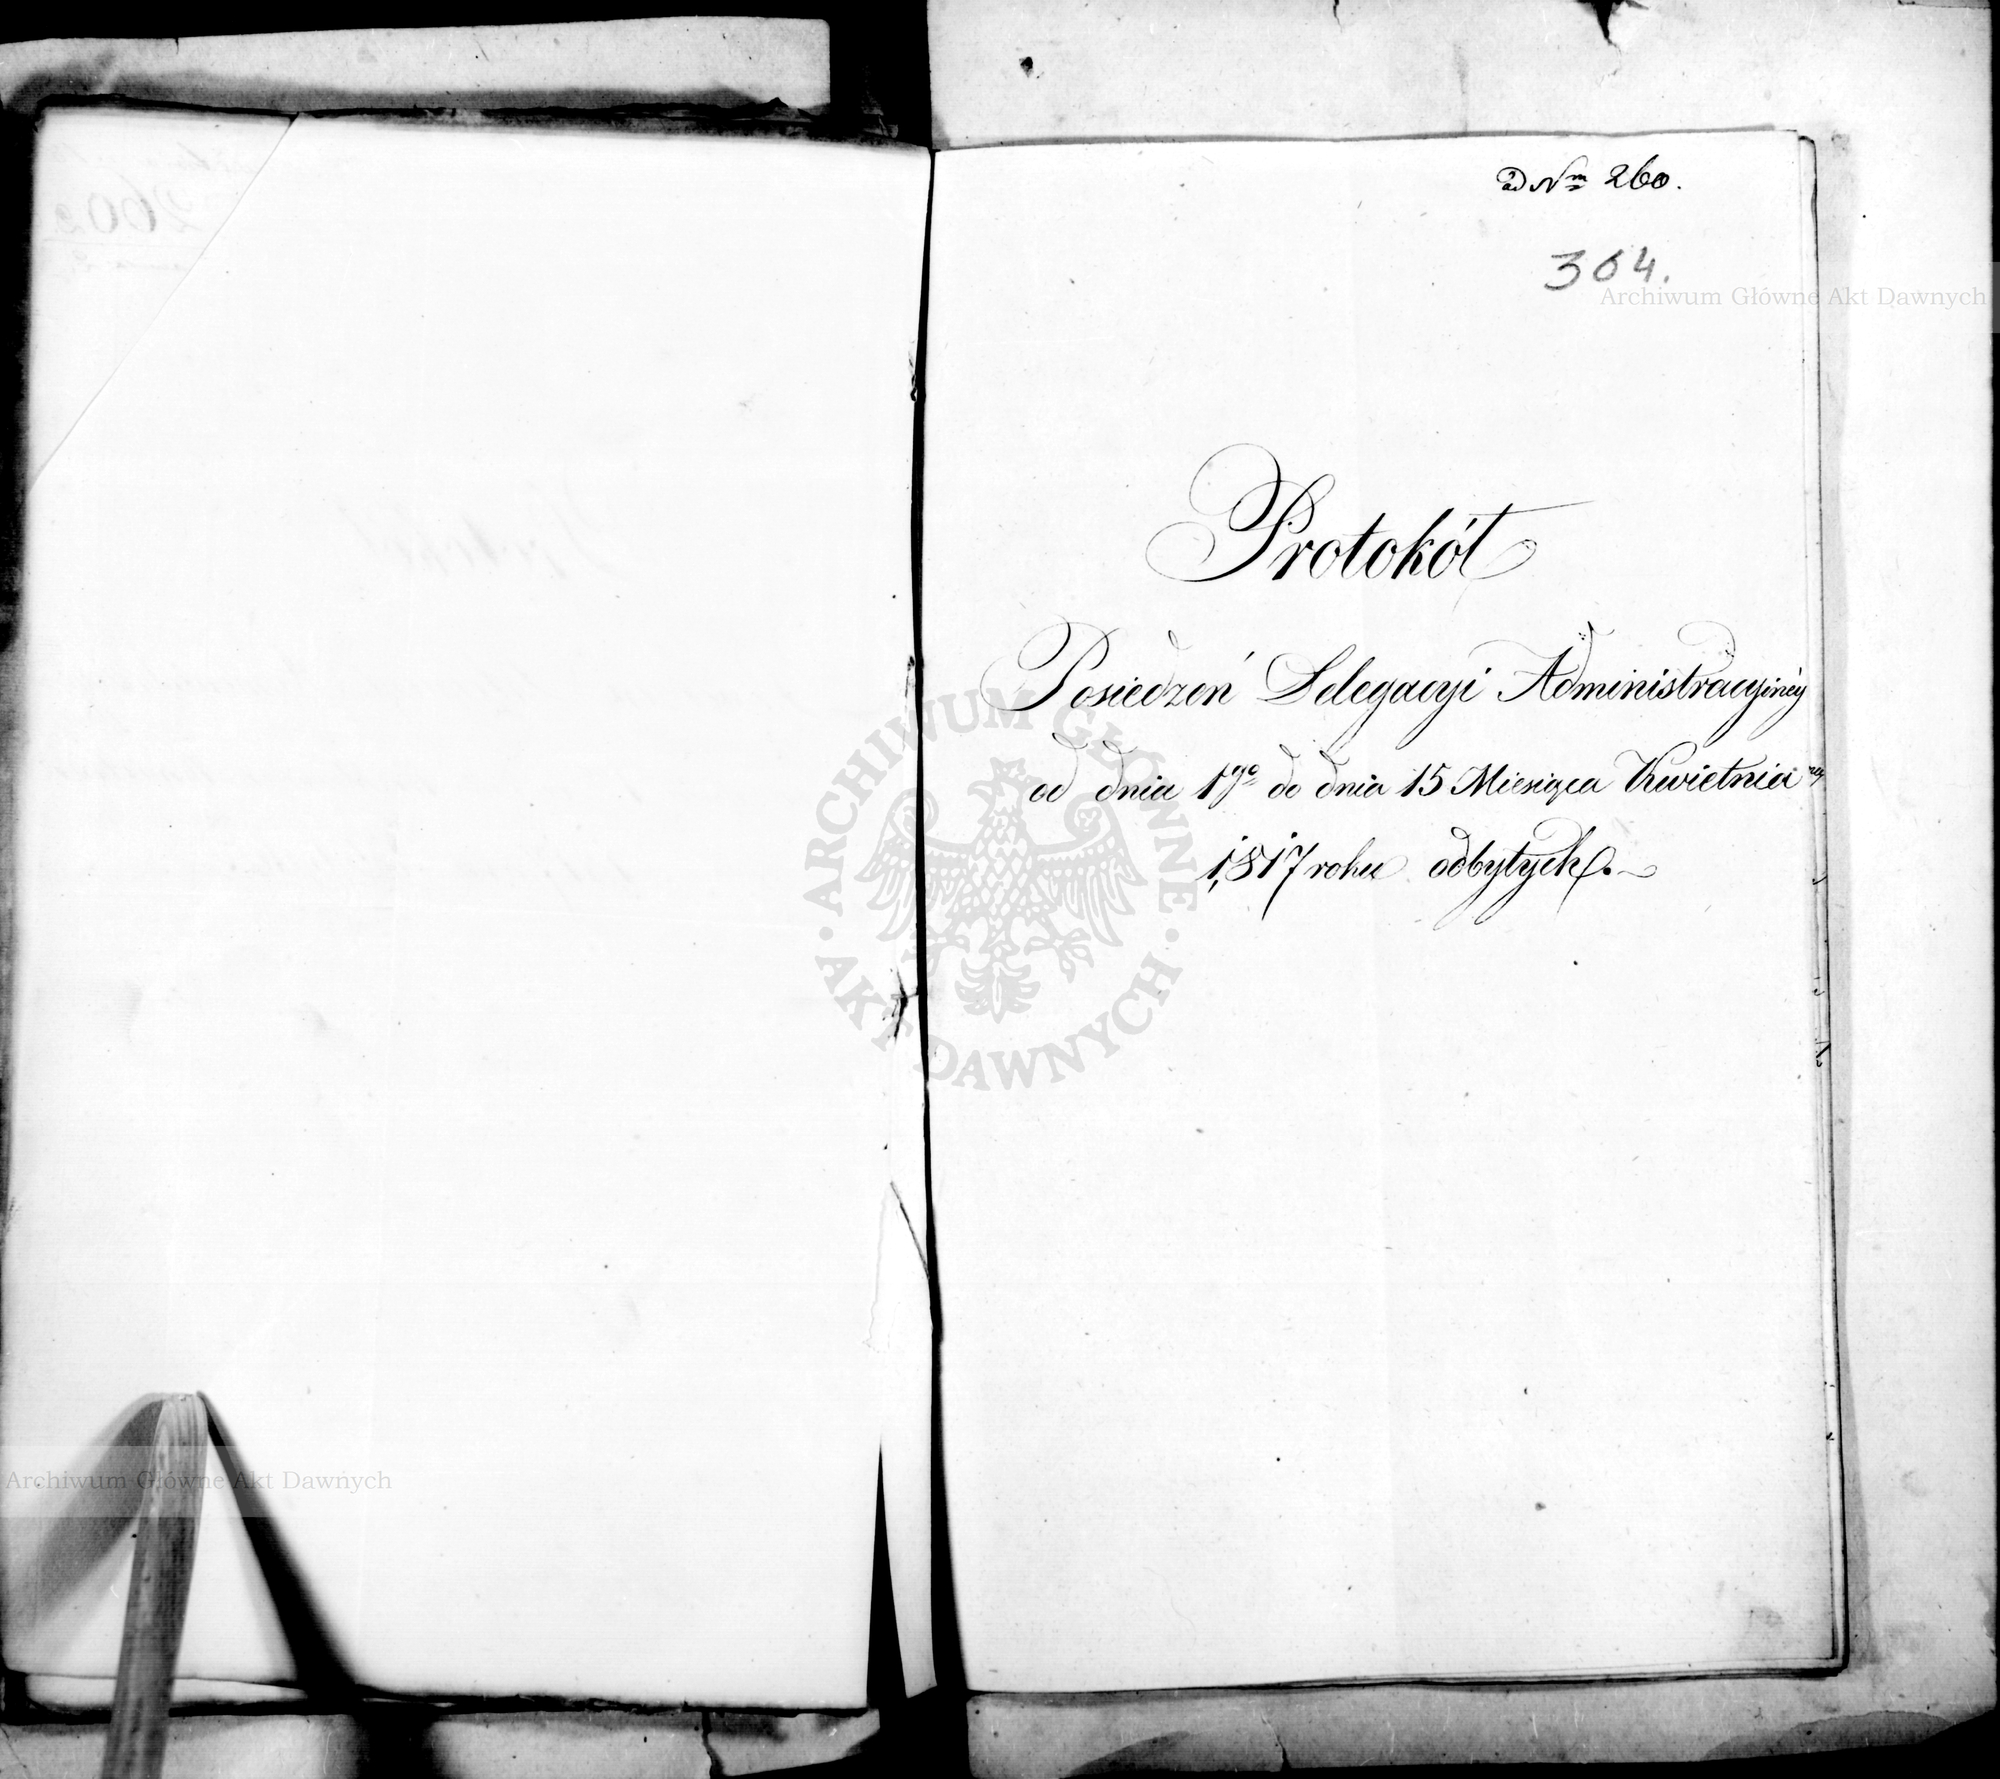 ad Nm 260.
304.
Archiwum Główne Akt Dawnych
Protokół
Posiedzeń Delegacyi Administracyiney
od dnia 1go do dnia 15 Miesiąca Kwietnia
1817 roku odbytych.
ARCHIWUM GŁÓWNE
AKT DAWNYCH
Archiwum Główne Akt Dawnych